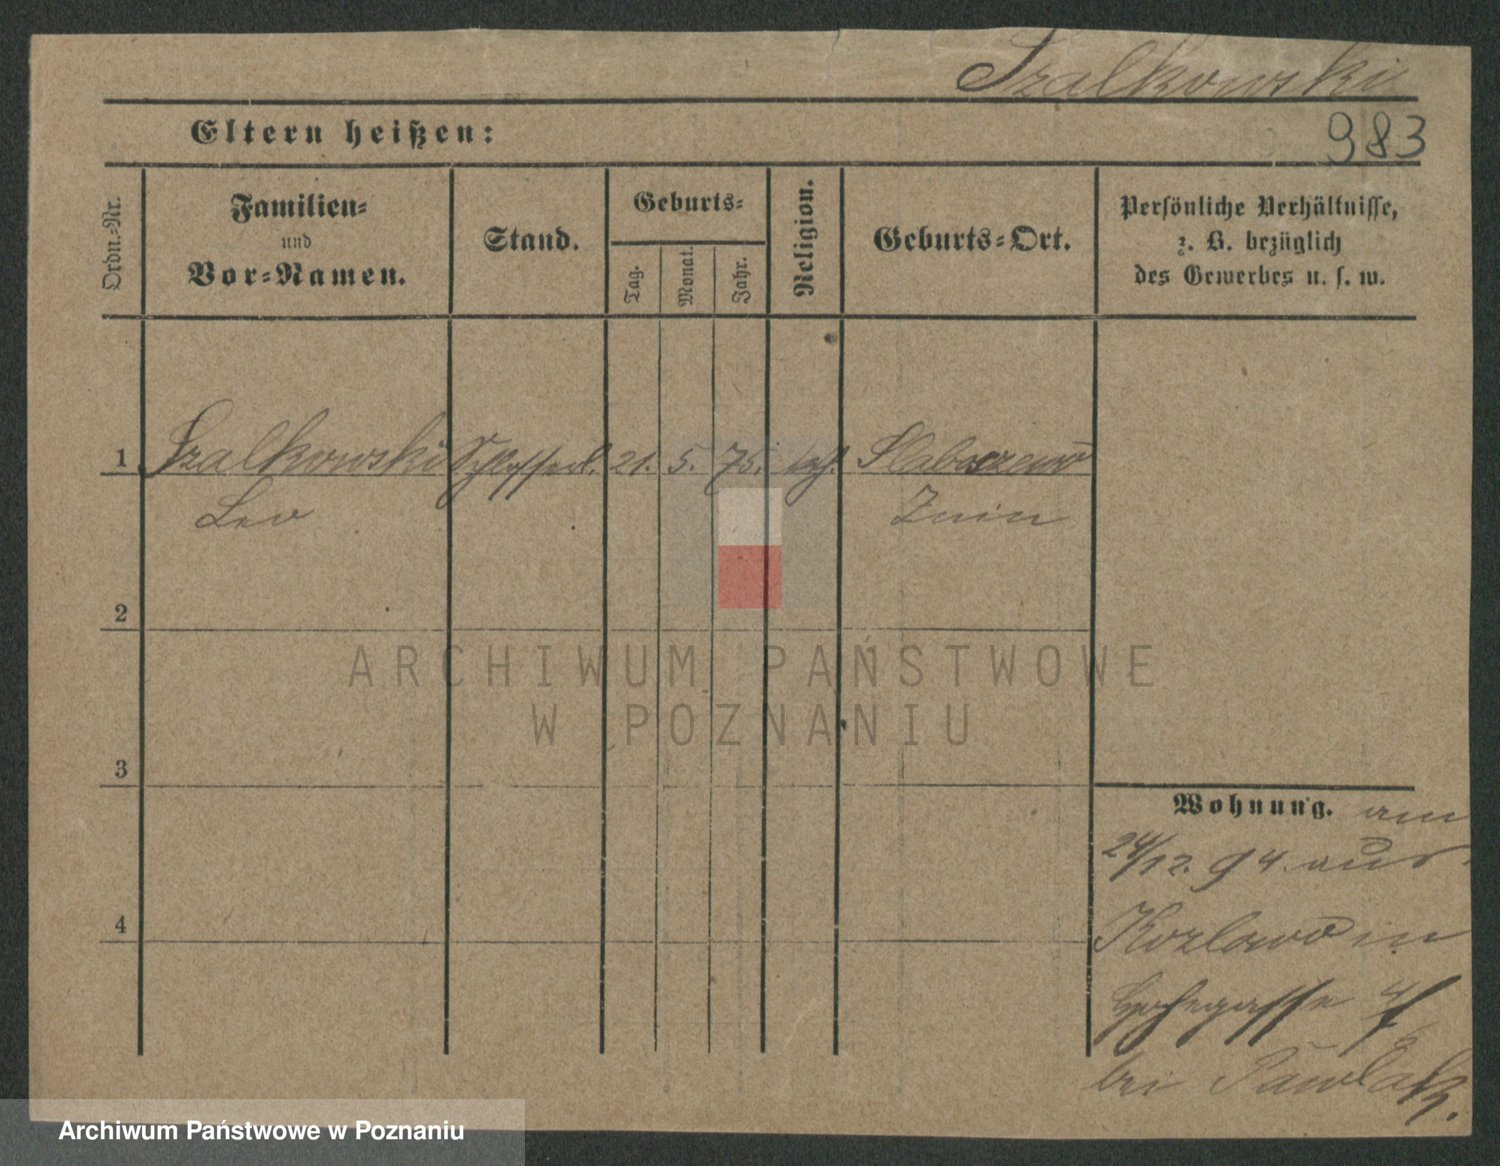 Szalkowski
983
Eltern heißen:
Ordn.-Nr.
Familien-
und
Vor-Namen.
Stand.
Geburts-
Tag.
Monat.
Jahr.
Religion.
Geburts-Ort.
Persönliche Verhältnisse,
z. B. bezüglich
des Gewerbes u. s. w.
1 Szalkowski 21. 5. 75. Slaboszewo
Leo Znin
2
3
4
ARCHIWUM PAŃSTWOWE
W POZNANIU
Wohnung. am
24/12. 94. aus
Kozlowo in
bei Pawlak.
Archiwum Państwowe w Poznaniu